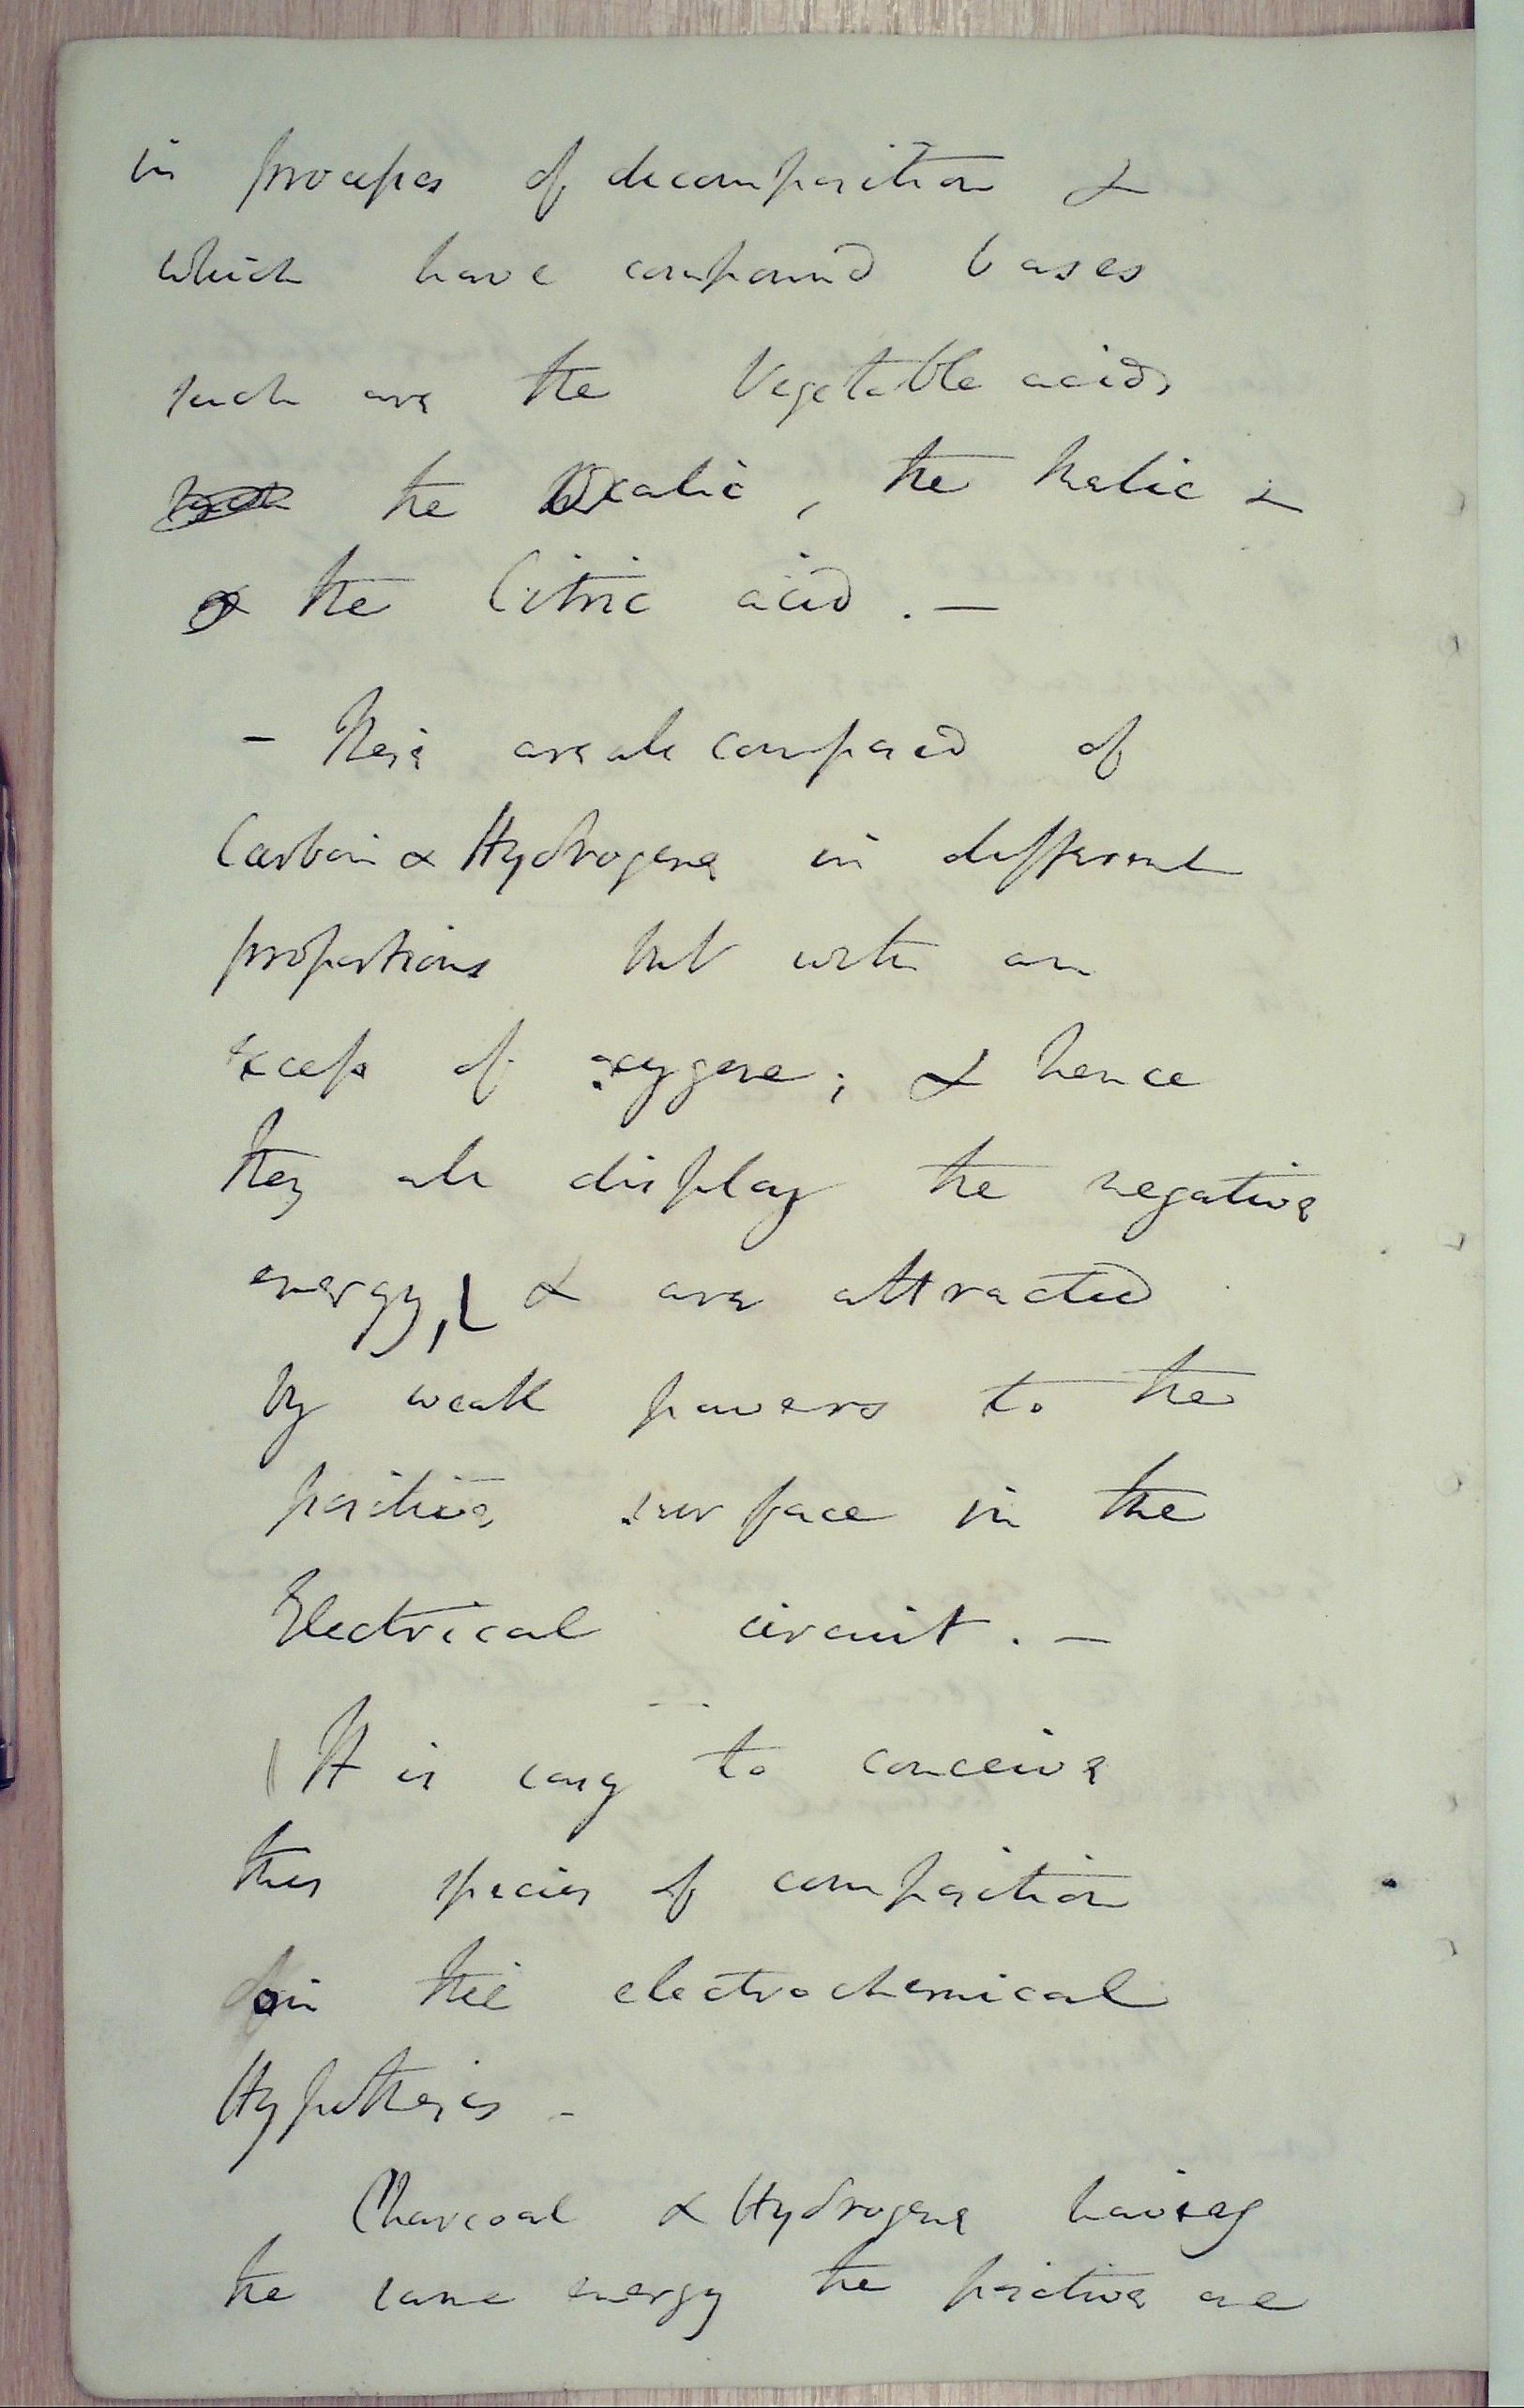 in processes of decomposition &
which have compound bases
such are the Vegetable acids
such the Oxalic, the Malic &
& the Citric acid. —
— These are all composed of
Carbon & Hydrogene in different
proportions but with an
excess of oxygene; & hence
they all display the negative
energy, & are attracted
by weak powers to the
positive surface in the
Electrical circuit. —
It is easy to conceive
this species of composition
on the electrochemical
Hypothesis –
Charcoal & Hydrogene having
the same energy the positive are